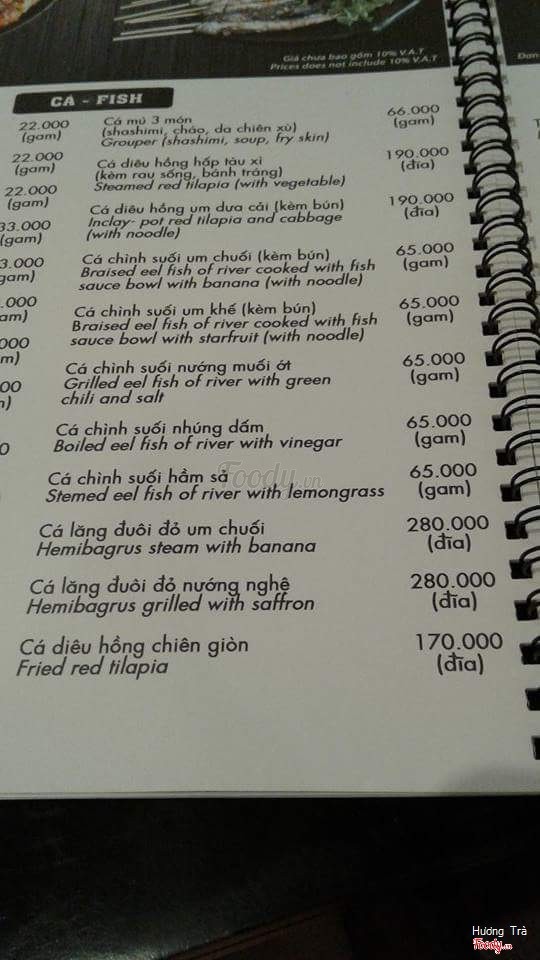 Giá chưa bao gồm 10% V.A.T
Prices does not include 10% V.A.T
CÁ - FISH
22.000
(gam)
22.000
(gam)
22.000
(gam)
33.000
(gam)
3.000
gam)
.000
am)
000
m)
00
n)
0
Cá mú 3 món
(shashimi, cháo, da chiên xù)
Grouper (shashimi, soup, fry skin)
66.000
(gam)
Cá diêu hồng hấp tàu xì
(kèm rau sống, bánh tráng)
Steamed red tilapia (with vegetable)
190.000
(đĩa)
Cá diêu hồng um dưa cải (kèm bún)
Inclay- pot red tilapia and cabbage
(with noodle)
190.000
(đĩa)
Cá chình suối um chuối (kèm bún)
Braised eel fish of river cooked with fish
sauce bowl with banana (with noodle)
65.000
(gam)
Cá chình suối um khế (kèm bún)
Braised eel fish of river cooked with fish
sauce bowl with starfruit (with noodle)
65.000
(gam)
Cá chình suối nướng muối ớt
Grilled eel fish of river with green
chili and salt
65.000
(gam)
Cá chình suối nhúng dấm
Boiled eel fish of river with vinegar
65.000
(gam)
Cá chình suối hầm sả
Stemed eel fish of river with lemongrass
65.000
(gam)
Cá lăng đuôi đỏ um chuối
Hemibagrus steam with banana
280.000
(đĩa)
Cá lăng đuôi đỏ nướng nghệ
Hemibagrus grilled with saffron
280.000
(đĩa)
Cá diêu hồng chiên giòn
Fried red tilapia
170.000
(đĩa)
Foody.vn
Hương Trà
Foody.vn